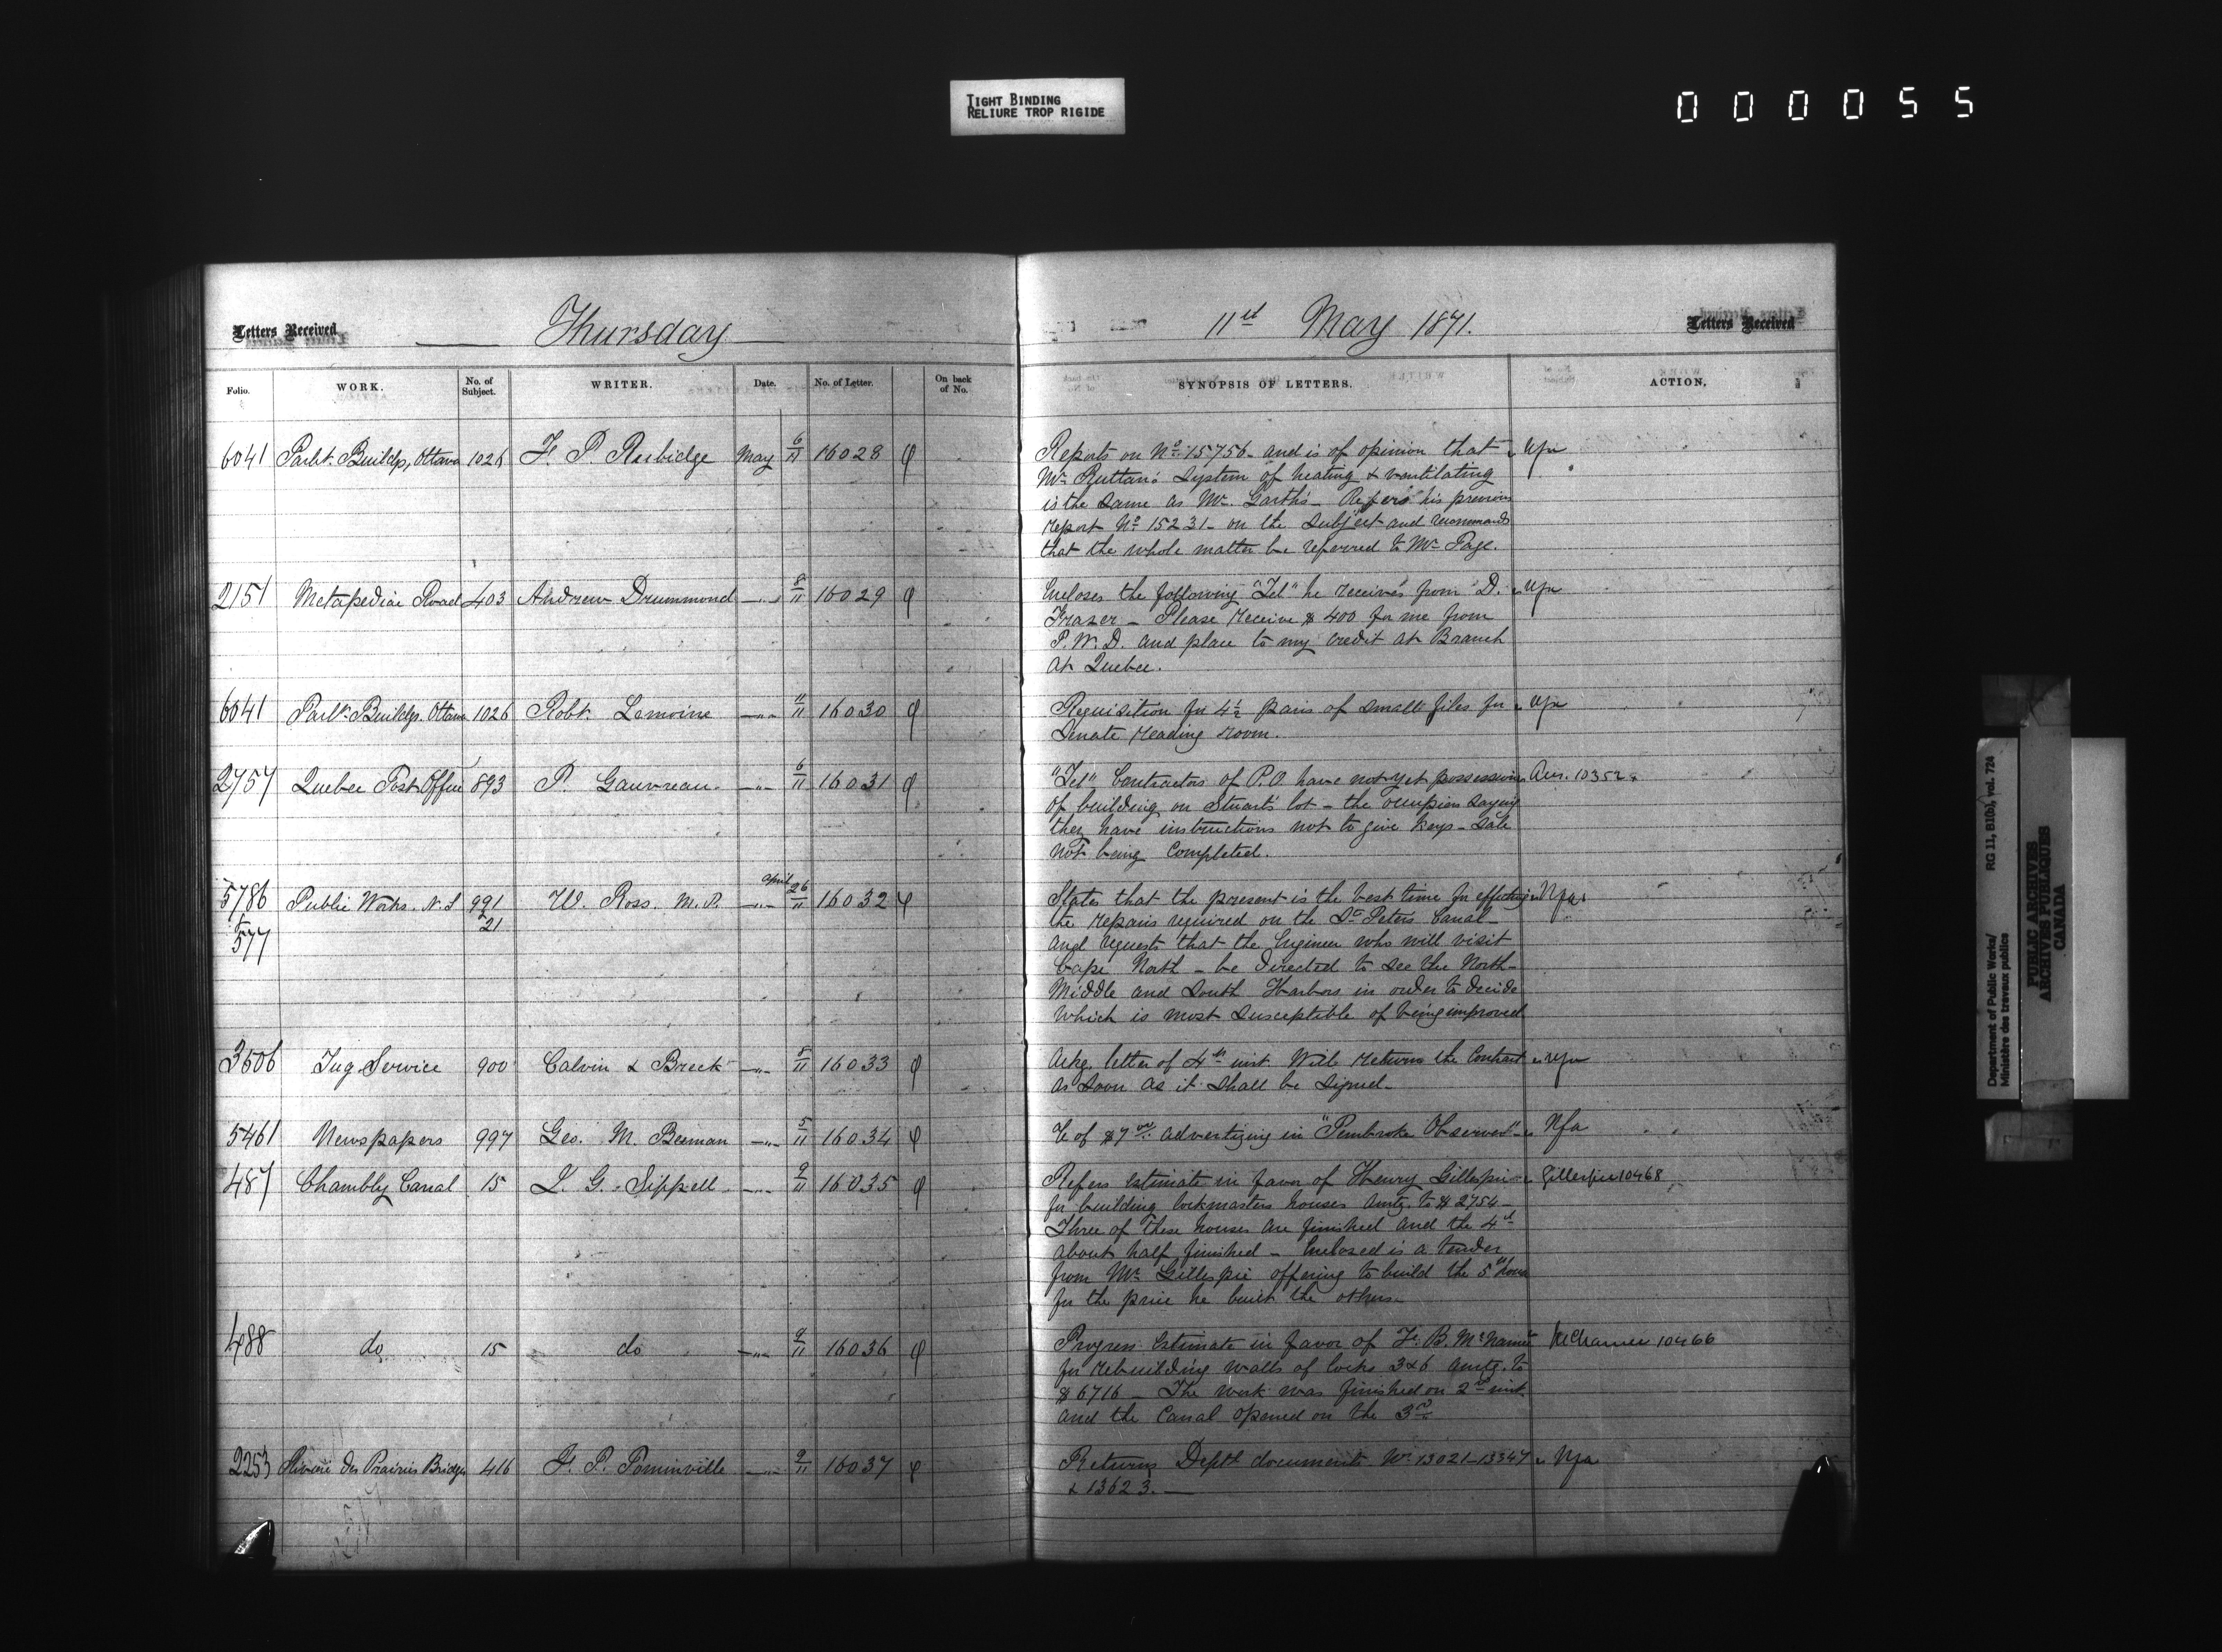 TIGHT BINDING
RELIURE TROP RIGIDE
000055
Letters Received
Thursday
11th May 1871.
Letters Received
Folio. WORK. No. of Subject. WRITER. Date. No. of Letter. On back of No. SYNOPSIS OF LETTERS. ACTION.
6041 Parlt. Buildgs, Ottawa 1026 F. P. Rubidge May 6/11 16028 Reports on No. 15756 - and is of opinion that
Mr. Ruttan's system of heating & ventilating
is the same as Mr. Garth's - Refers his previous
report No. 15231 - on the subject and recommends
that the whole matter be referred to Mr. Page.
2151 Metapediac Road 403 Andrew Drummond 8/11 16029 Encloses the following "Tel" he received from D.
Frazer - Please receive $400 for me from
P.W.D. and place to my credit at Branch
at Quebec.
6041 Parlt. Buildgs. Ottawa 1026 Robt. Lemoine 11/11 16030 Requisition for 4½ pairs of small files for
Senate reading room.
2757 Quebec Post Office 893 P. Gauvreau. 6/11 16031 "Tel" Contractors of P.O. have not yet possession Ans. 10352.
of building on Stuart's lot - the occupiers saying
they have instructions not to give keys - sale
not being completed.
5786 & 577 Public Works. N.S 991 & 21 W. Ross. M.P. April 26/11 16032 States that the present is the best time for effecting Nfa
the repairs required on the St. Peters Canal -
and requests that the Engineer who will visit
Cape North - be directed to see the North -
Middle and South Harbors in order to decide
which is most susceptible of being improved
3606 Tug Service 900 Calvin & Breck 8/11 16033 Ackg. letter of 4th inst. Will return the Contract
as soon as it shall be signed -
5461 Newspapers 997 Geo. M. Beeman 5/11 16034 of $7 00 advertizing in "Pembroke Observer" - Nfa
487 Chambly Canal 15 L. G. Sippell 9/11 16035 Refers estimate in favor of Henry Gillespie Gillespie 10468
for building lockmasters houses amtg. to $2754 -
Three of these houses are finished and the 4th
about half finished - Enclosed is a tender
from Mr. Gillespie offering to build the 5th house
for the price he built the others -
488 do 15 do 9/11 16036 Progress Estimate in favor of F. B. McNamee McNamee 10466
for rebuilding walls of locks 3 & 6 amtg. to
$6716 - The work was finished on 2nd inst.
and the Canal opened on the 3rd.
2253 Riviere des Prairies Bridge 416 F. P. Pominville 9/11 16037 Returns Deptl documents No. 13021 - 13347 Nfa
& 13623. -
Department of Public Works/ RG 11, B1(b), vol. 724
Ministère des travaux publics
PUBLIC ARCHIVES
ARCHIVES PUBLIQUES
CANADA